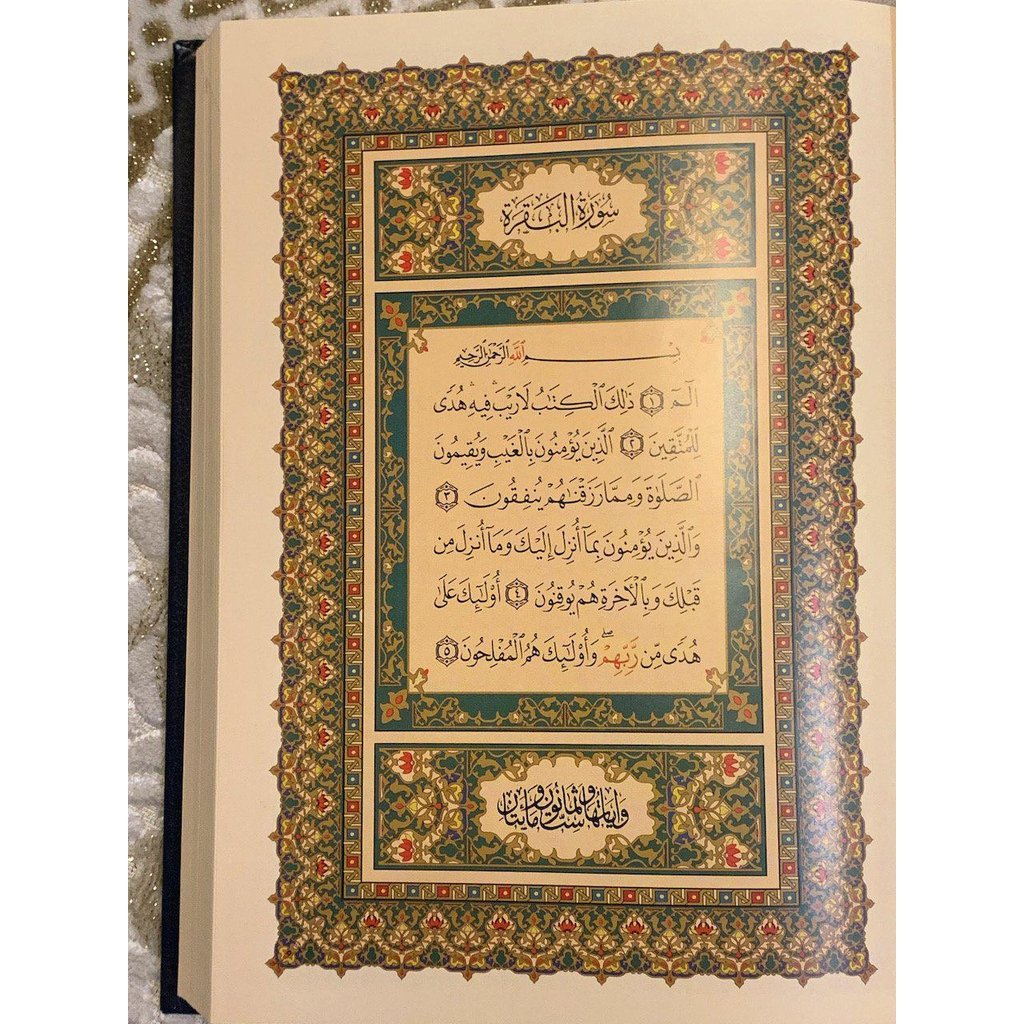 سُورَةُ البَقَرَةِ
بِسْمِ ٱللَّهِ ٱلرَّحْمَٰنِ ٱلرَّحِيمِ
الٓمٓ ١ ذَٰلِكَ ٱلْكِتَٰبُ لَا رَيْبَ ۛ فِيهِ ۛ هُدًى
لِّلْمُتَّقِينَ ٢ ٱلَّذِينَ يُؤْمِنُونَ بِٱلْغَيْبِ وَيُقِيمُونَ
ٱلصَّلَوٰةَ وَمِمَّا رَزَقْنَٰهُمْ يُنفِقُونَ ٣
وَٱلَّذِينَ يُؤْمِنُونَ بِمَآ أُنزِلَ إِلَيْكَ وَمَآ أُنزِلَ مِن
قَبْلِكَ وَبِٱلْأَخِرَةِ هُمْ يُوقِنُونَ ٤ أُوْلَٰٓئِكَ عَلَىٰ
هُدًى مِّن رَّبِّهِمْ ۖ وَأُوْلَٰٓئِكَ هُمُ ٱلْمُفْلِحُونَ ٥
وآياتها ست وثمانون ومائتان